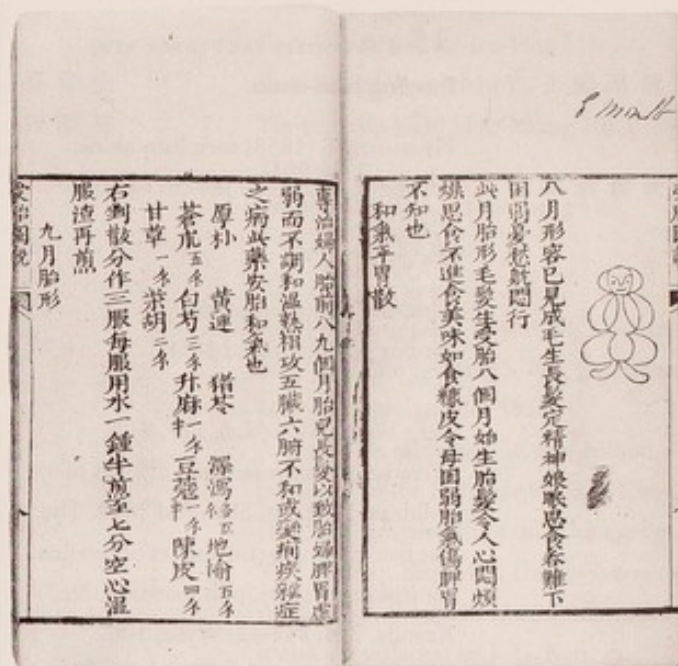 8 month
八月形容已見成毛生長髮定精神娘眠思食吞難下
困弱憂愁氣悶行
此月胎形毛髮生受胎八個月始生胎髮令人心悶煩
燥思食不進食美味如食糠皮令母困弱胎氣傷脾胃
不知也
和氣平胃散
專治婦人胎前八九個月胎兒長髮以致胎婦脾胃虛
弱而不調和溫熱相攻五臟六腑不和或變痢疾雜症
之病此藥安胎和氣也
厚朴 黃連 猪苓 澤瀉各五 地榆五分
蒼朮五分 白芍三分 升麻 一分 豆蔻 一分 陳皮四分
甘草一分 柴胡二分
右剉散分作三服每服用水一鍾半煎至七分空心溫
服渣再煎
九月胎形